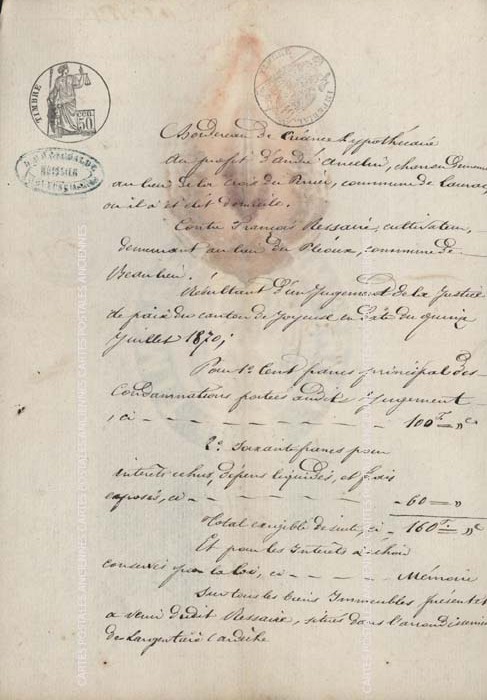 TIMBRE
50 cen
IMPERIAL
HUISSIER
Bordereau de créance hypothécaire
au profit d'andré Ancelin, demeurant
au lieu de la Croix du Perrier, commune de Laurac,
ou il a et dit domicile.
Contre François Ressaire, cultivateur,
demeurant au lieu du Pléoux, commune de
Beaulieu.
Résultant d'un Jugement de la Justice
de paix du canton de Joyeuse en date du quinze
Juillet 1870;
Pour 1° Cent francs principal des
Condamnations portées audit Jugement
, ci - - - - - - - - - 100 f = " c
2° Soixante francs pour
intérêts echus, dépens liquidés, et frais
exposés, ci - - - - - - - 60 = "
Total exigible de suite, ci - 160 f = " c
Et pour les Intérêts à échoir
conservés par la loi, ci - - - - Mémoire
Sur tous les biens Immeubles présents et
a venir dudit Ressaire, situés dans l'arrondissement
de Largentière ardèche
CARTES POSTALES ANCIENNES